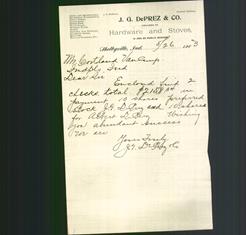 J. G. DePREZ & CO.
Hardware and Stoves,
Shelbyville, Ind. 5/26 1903
Mr Cortland VanCamp.
Indpls Ind
Dear Sir Enclosed find 2
checks total $2188.00 in
payment 10 shares prefered
stock JG DePrez and 10 shares
for DePrez Wishing
you abundant success
We are
Yours Truly
J. G. DePrez Co